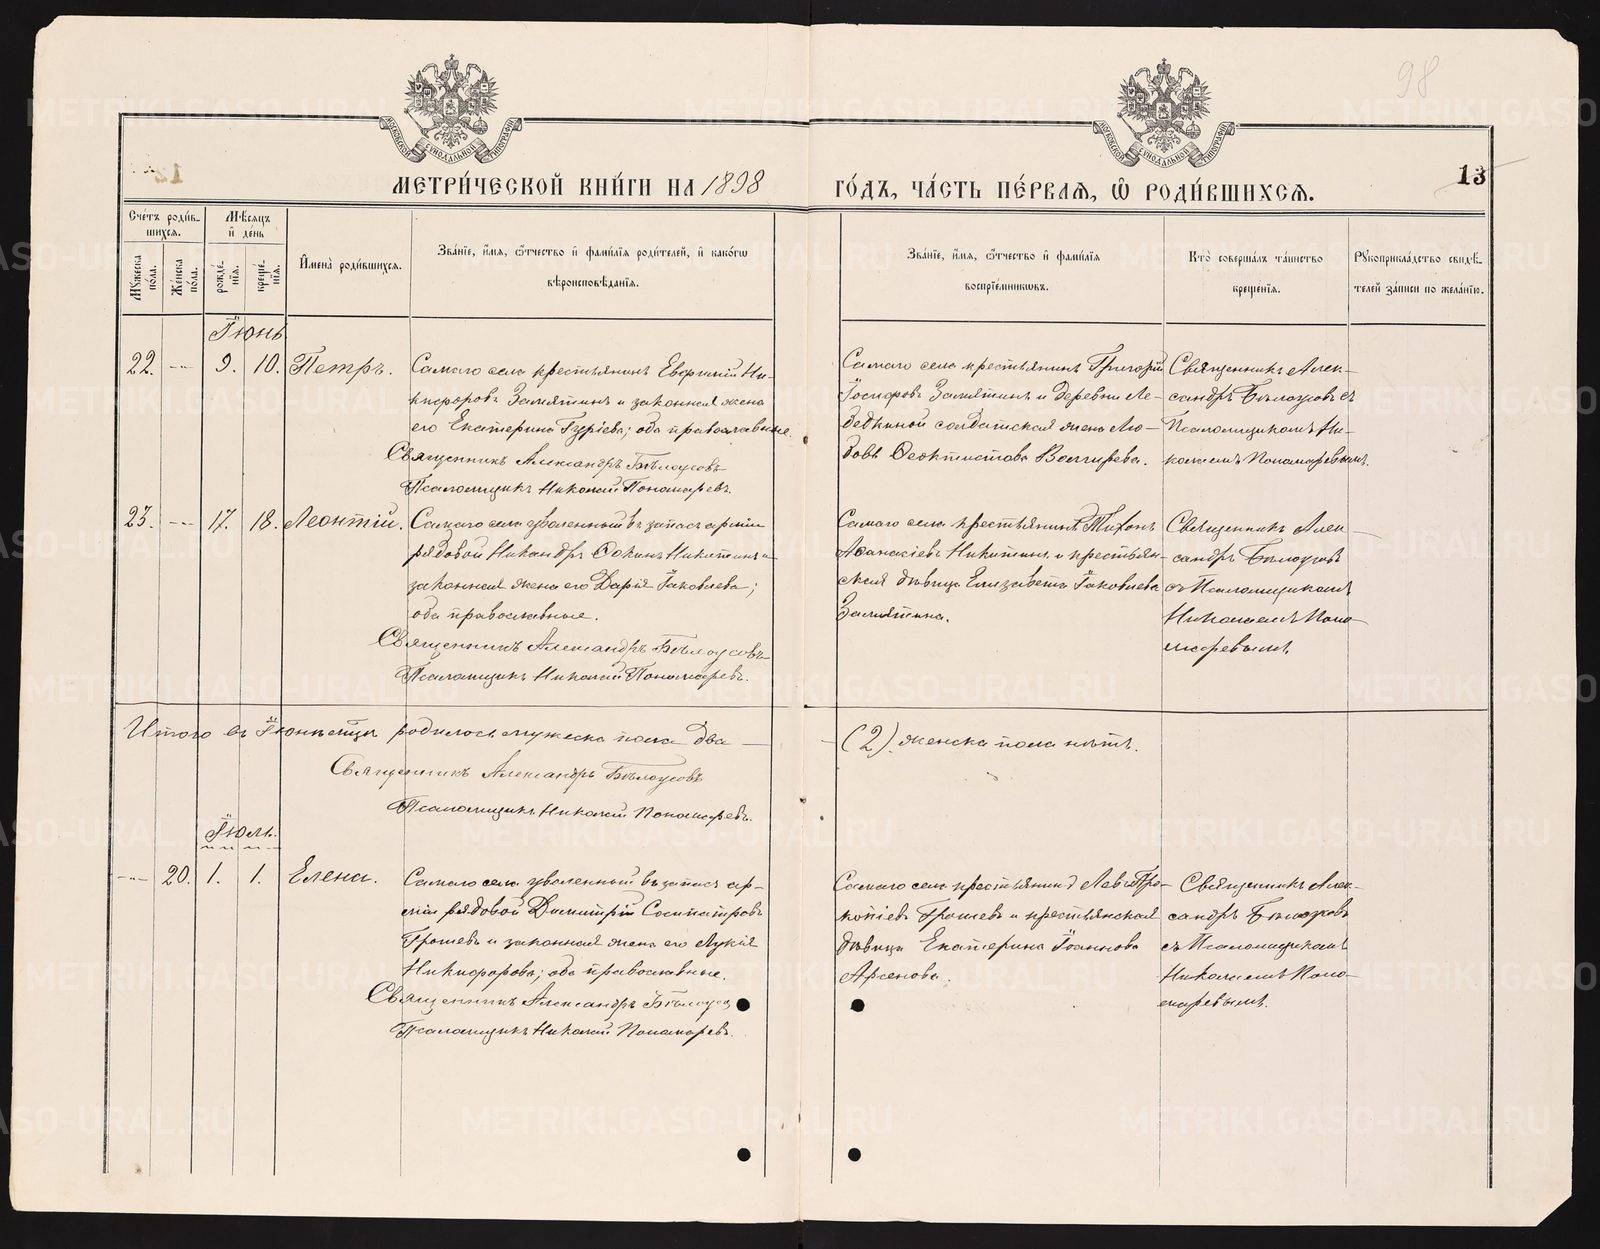 98
МЕТРИ́ЧЕСКОЙ КНИ́ГИ НА 1898 ГО́ДЪ, ЧА́СТЬ ПЕ́РВАѦ, Ѽ РОДИ́ВШИХСѦ.
13
Сче́тъ роди́в-
шихсѧ.
Мѣ́сѧцъ
и҆ де́нь
И҆мена̀ роди́вшихсѧ.
Зва́нїе, и҆́мѧ, ѻ҆́тчество и҆ фами́лїѧ роди́телей, и҆ како́гѡ
вѣроисповѣ́данїѧ.
Зва́нїе, и҆́мѧ, ѻ҆́тчество и҆ фами́лїѧ
воспрїе́мникѡвъ.
Кто̀ соверша́лъ та́инство
креще́нїѧ.
Рꙋкоприкла́дство свидѣ́-
телей за́писи по жела́нїю.
Мꙋ́жеска
по́ла.
Же́нска
по́ла.
рожде́-
нїѧ.
креще́-
нїѧ.
Іюнь
22. -"- 9. 10. Петръ.
Самаго села крестьянинъ Евфимій Ни-
кифоровъ Замятинъ и законная жена
его Екатерина Гуріева; оба православные.
Священникъ Александръ Бѣлоусовъ
Псаломщикъ Николай Пономаревъ.
Самаго села крестьянинъ Григорій
Іосифовъ Замятинъ и деревни Ле-
бедкиной солдатская жена Лю-
бовь Феоктистова
Священникъ Алек-
сандръ Бѣлоусовъ съ
Псаломщикомъ Ни-
колаемъ Пономаревымъ.
23. -"- 17. 18. Леонтій.
Самаго села уволенный въ запасъ арміи
рядовой Никандръ Фокинъ Никитинъ и
законная жена его Дарія Іаковлева;
оба православные.
Священникъ Александръ Бѣлоусовъ
Псаломщикъ Николай Пономаревъ.
Самаго села крестьянинъ Тихонъ
Афанасіевъ Никитинъ и крестьян-
ская дѣвица Елизавета Іаковлева
Замятина.
Священникъ Алек-
сандръ Бѣлоусовъ
съ Псаломщикомъ
Николаемъ Поно-
маревымъ.
Итого въ Іюнѣ мцѣ родилось мужеска пола два — (2). женска пола нѣтъ.
Священникъ Александръ Бѣлоусовъ
Псаломщикъ Николай Пономаревъ.
Іюль.
-"- 20. 1. 1. Елена.
Самаго села уволенный въ запасъ ар-
міи рядовой Димитрій Сосипатровъ
Грошевъ и законная жена его Лукія
Никифорова; оба православные.
Священникъ Александръ Бѣлоусов
Псаломщикъ Николай Пономаревъ.
Самаго села крестьянинъ Левъ Про-
копіевъ Грошевъ и крестьянская
дѣвица Екатерина Іоаннова
Арсенова.
Священникъ Алек-
сандръ Бѣлоусовъ
съ Псаломщикомъ
Николаемъ Поно-
маревымъ.